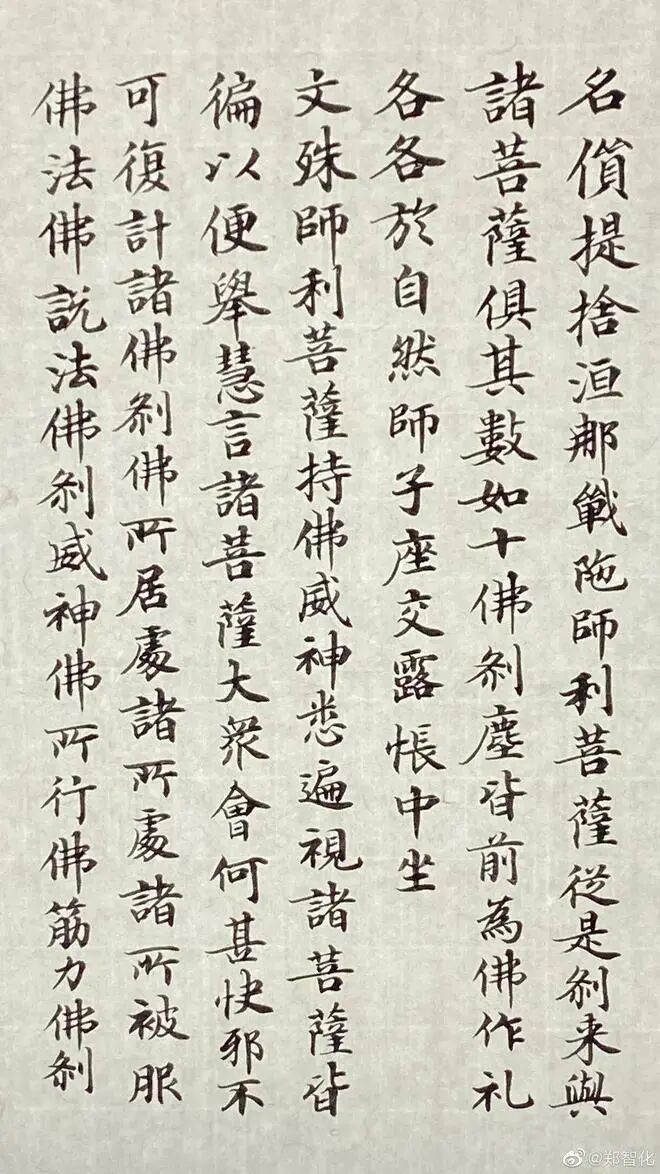 名傊提捨洹那鞞陁師利菩薩從是刹来與
諸菩薩俱其數如十佛刹塵皆前為佛作礼
各各於自然師子座交露帳中坐
文殊師利菩薩持佛威神悉遍視諸菩薩皆
徧以便舉慧言諸菩薩大衆會何甚快邪不
可復計諸佛刹佛所居處諸所處諸所被服
佛法佛説法佛刹威神佛所行佛筋力佛刹
@郑智化